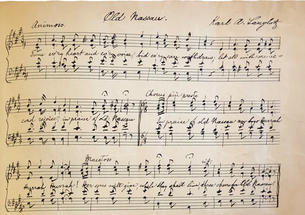 Old Nassau.
Animoso. Karl A. Langlotz
every heart and every voice, bid every care withdraw, let all with one
and rejoice, in praise of old Nassau
Chorus più mosso
In praise of old Nassau my boys Hurrah
Maestoso
Hurrah! Hurrah! Her sons will give while they shall live three cheers for Old Nassau